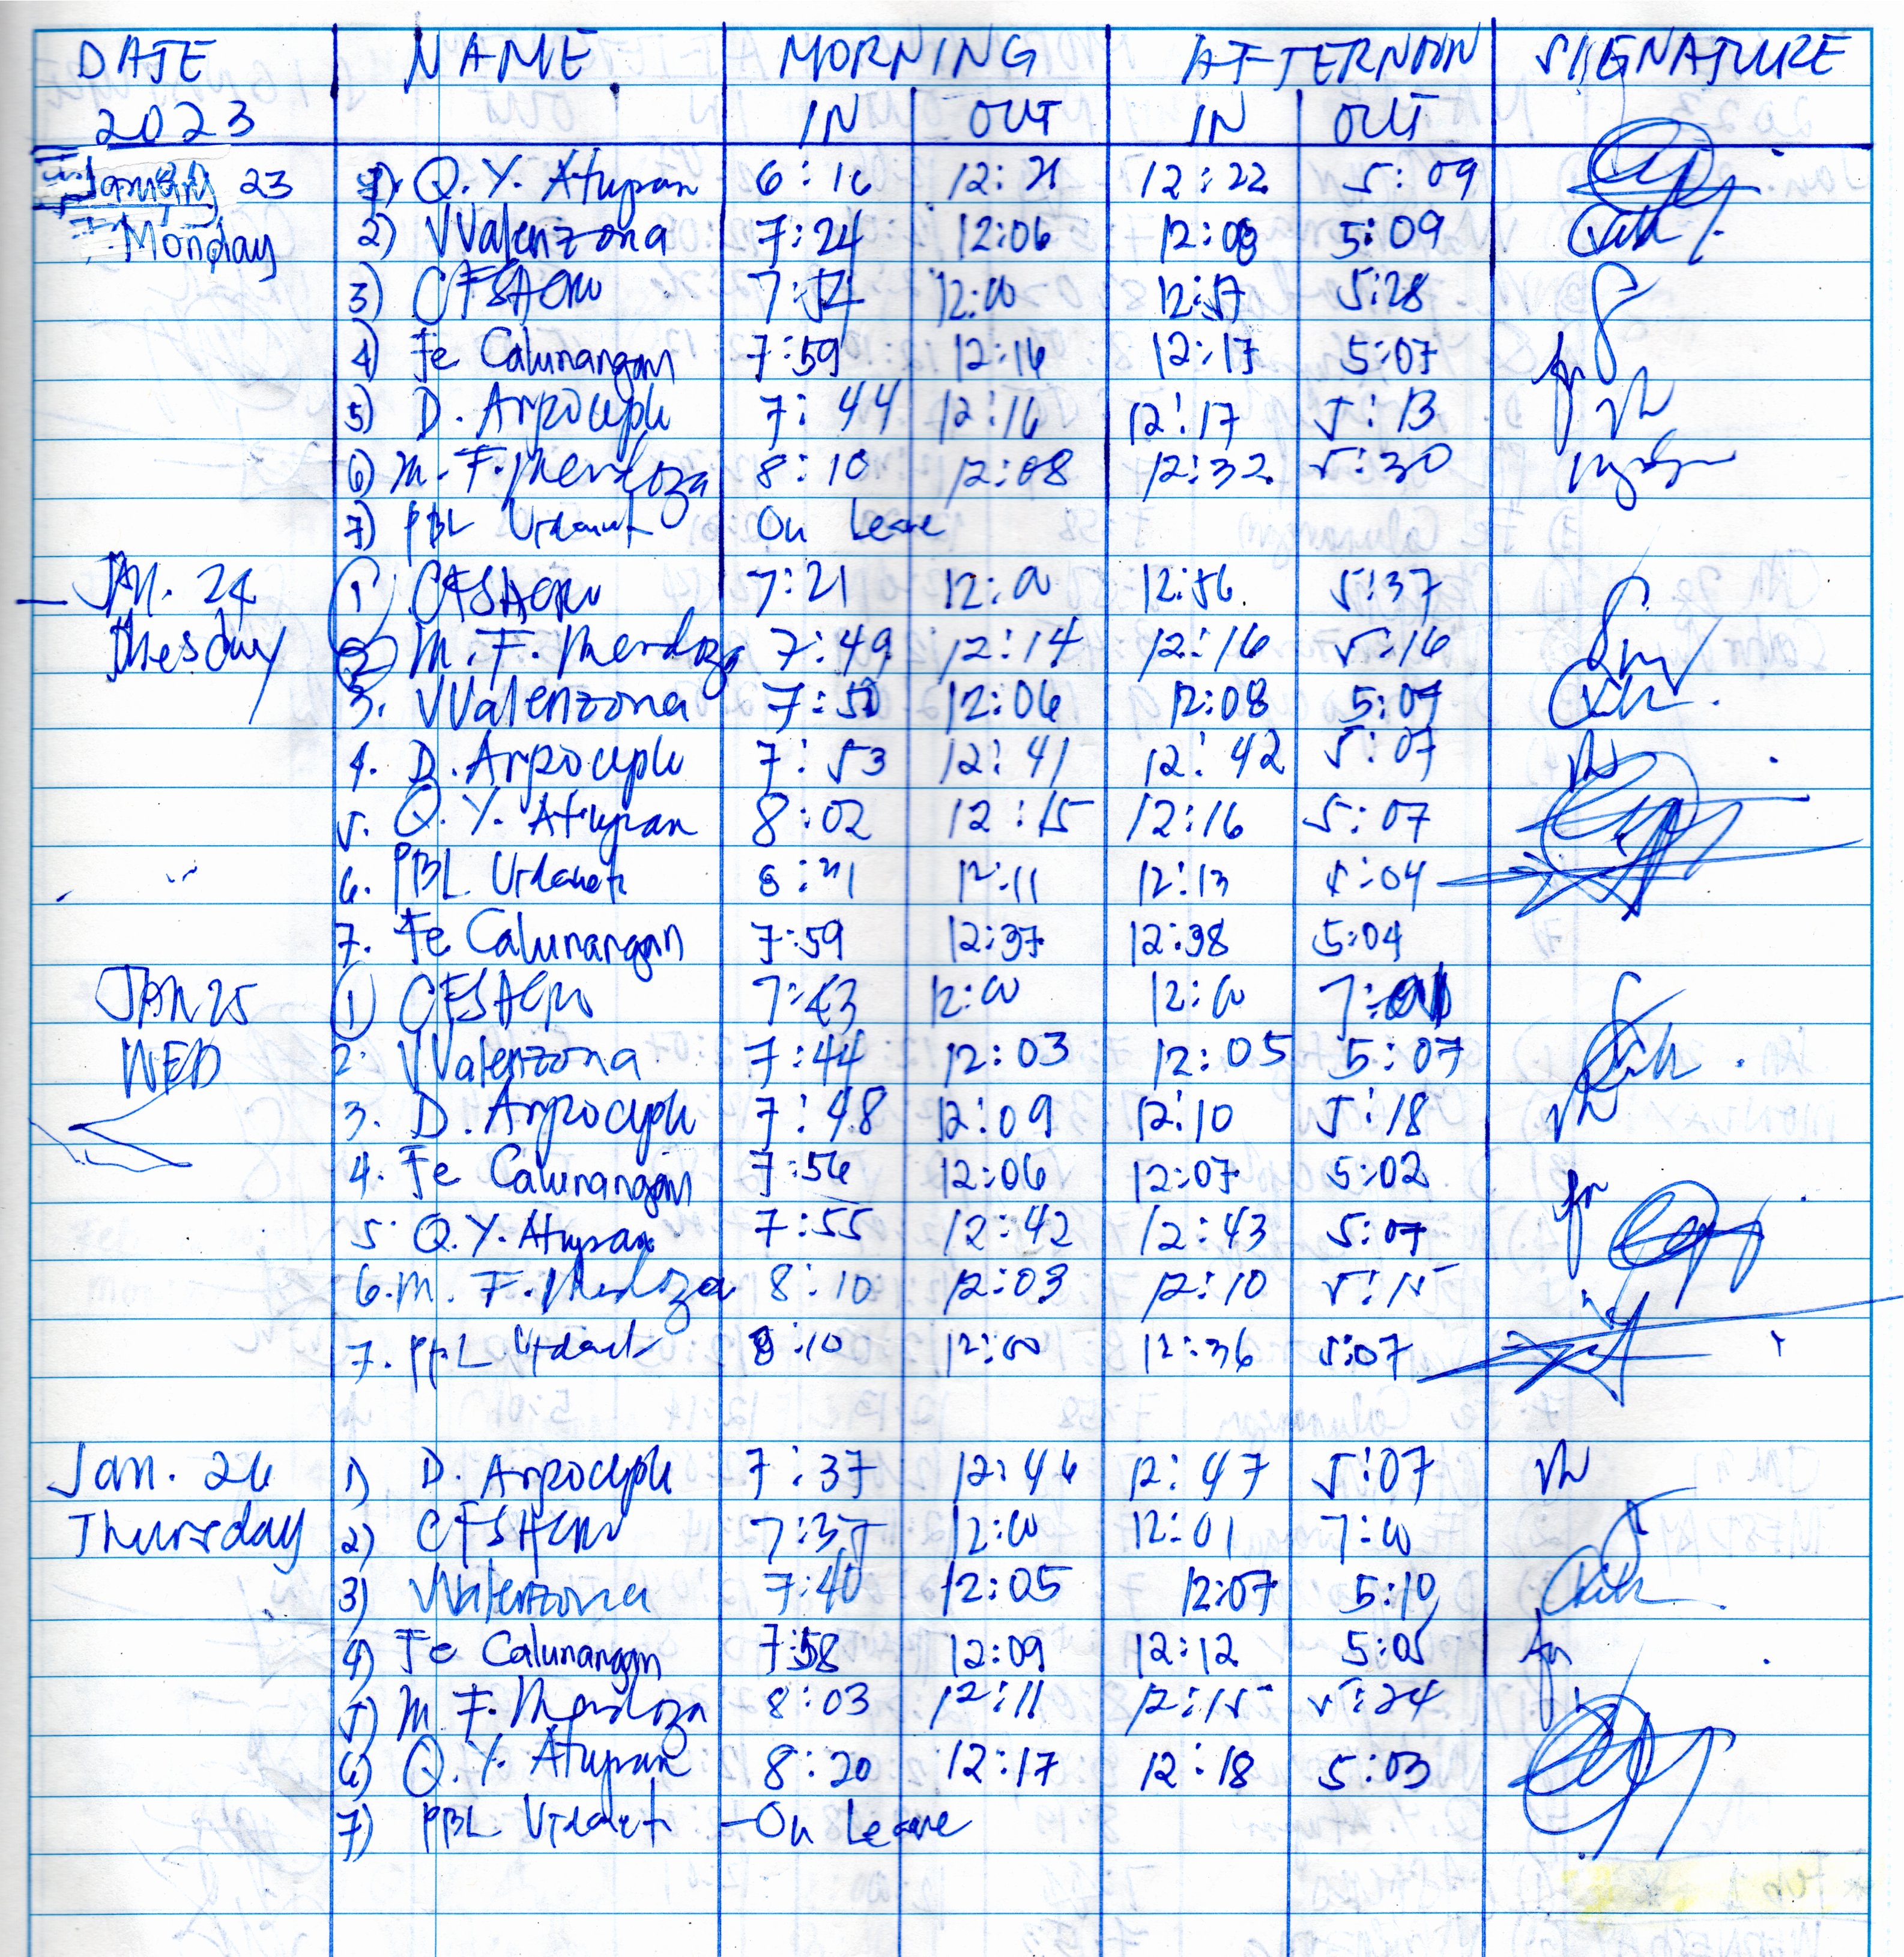 DATE NAME MORNING AFTERNOON SIGNATURE
2023 IN OUT IN OUT
January 23 1) Q. Y. Atupan 6:16 12:21 12:22 5:09
Monday 2) VValenzona 7:24 12:06 12:08 5:09
3) 12:00 12:57 5:28
4) Fe Calunangan 7:59 12:16 12:17 5:07
5) D. Arpoceple 7:44 12:16 12:17 5:13
6) M. F. Mendoza 8:10 12:08 12:32 5:30
7) PBL Urdaneta On Leave
JAN. 24 1 7:21 12:00 12:56 5:37
Tuesday 2 M. F. Mendoza 7:49 12:14 12:16 5:16
3. VValenzona 7:50 12:06 12:08 5:09
4. D. Arpoceple 7:53 12:41 12:42 5:07
5. Q. Y. Atupan 8:02 12:15 12:16 5:07
6. PBL Urdaneta 12:11 12:13 5:04
7. Fe Calunangan 7:59 12:37 12:38 5:04
JAN 25 1 7:43 12:00 12:00
WED 2. VValenzona 7:44 12:03 12:05 5:07
3. D. Arpoceple 7:48 12:09 12:10 5:18
4. Fe Calunangan 7:56 12:06 12:07 5:02
5. Q. Y. Atupan 7:55 12:42 12:43 5:07
6. M. F. Mendoza 8:10 12:03 12:10 5:15
7. PBL Urdaneta 8:10 12:00 12:36 5:07
Jan. 26 1) D. Arpoceple 7:37 12:46 12:47 5:07
Thursday 2) 7:37 12:00 12:01 7:00
3) VValenzona 7:40 12:05 12:07 5:10
4) Fe Calunangan 7:58 12:09 12:12 5:05
5) M. F. Mendoza 8:03 12:11 12:15 5:24
6) Q. Y. Atupan 8:20 12:17 12:18 5:03
7) PBL Urdaneta - On Leave